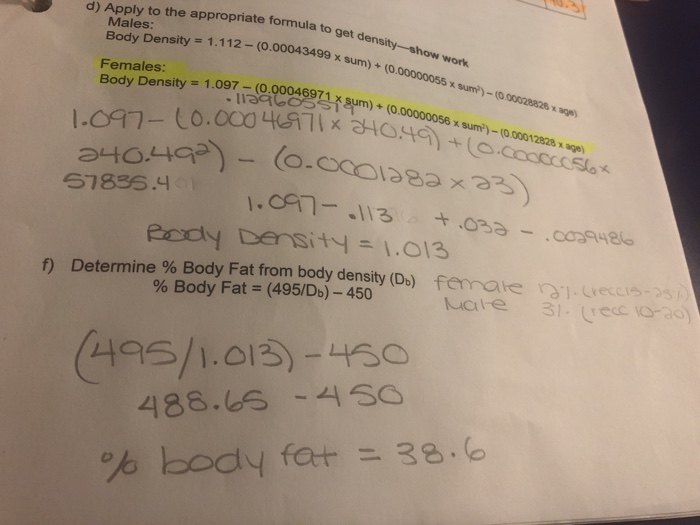 d) Apply to the appropriate formula to get density—show work
Males:
Body Density = 1.112 – (0.00043499 x sum) + (0.00000055 x sum²) – (0.00028826 x age)
Females:
Body Density = 1.097 – (0.00046971 x sum) + (0.00000056 x sum²) – (0.00012828 x age)
.1129605579
1.097 – (0.00046971 x 240.49) + (0.00000056 x
240.49²) – (0.0001282 x 23)
57835.401
1.097 – .113 + .032 – .0029486
Body Density = 1.013
f) Determine % Body Fat from body density (Db)
% Body Fat = (495/Db) – 450
female 12%
Male 3% (rec 10-20)
(495/1.013) – 450
488.65 – 450
% body fat = 38.6